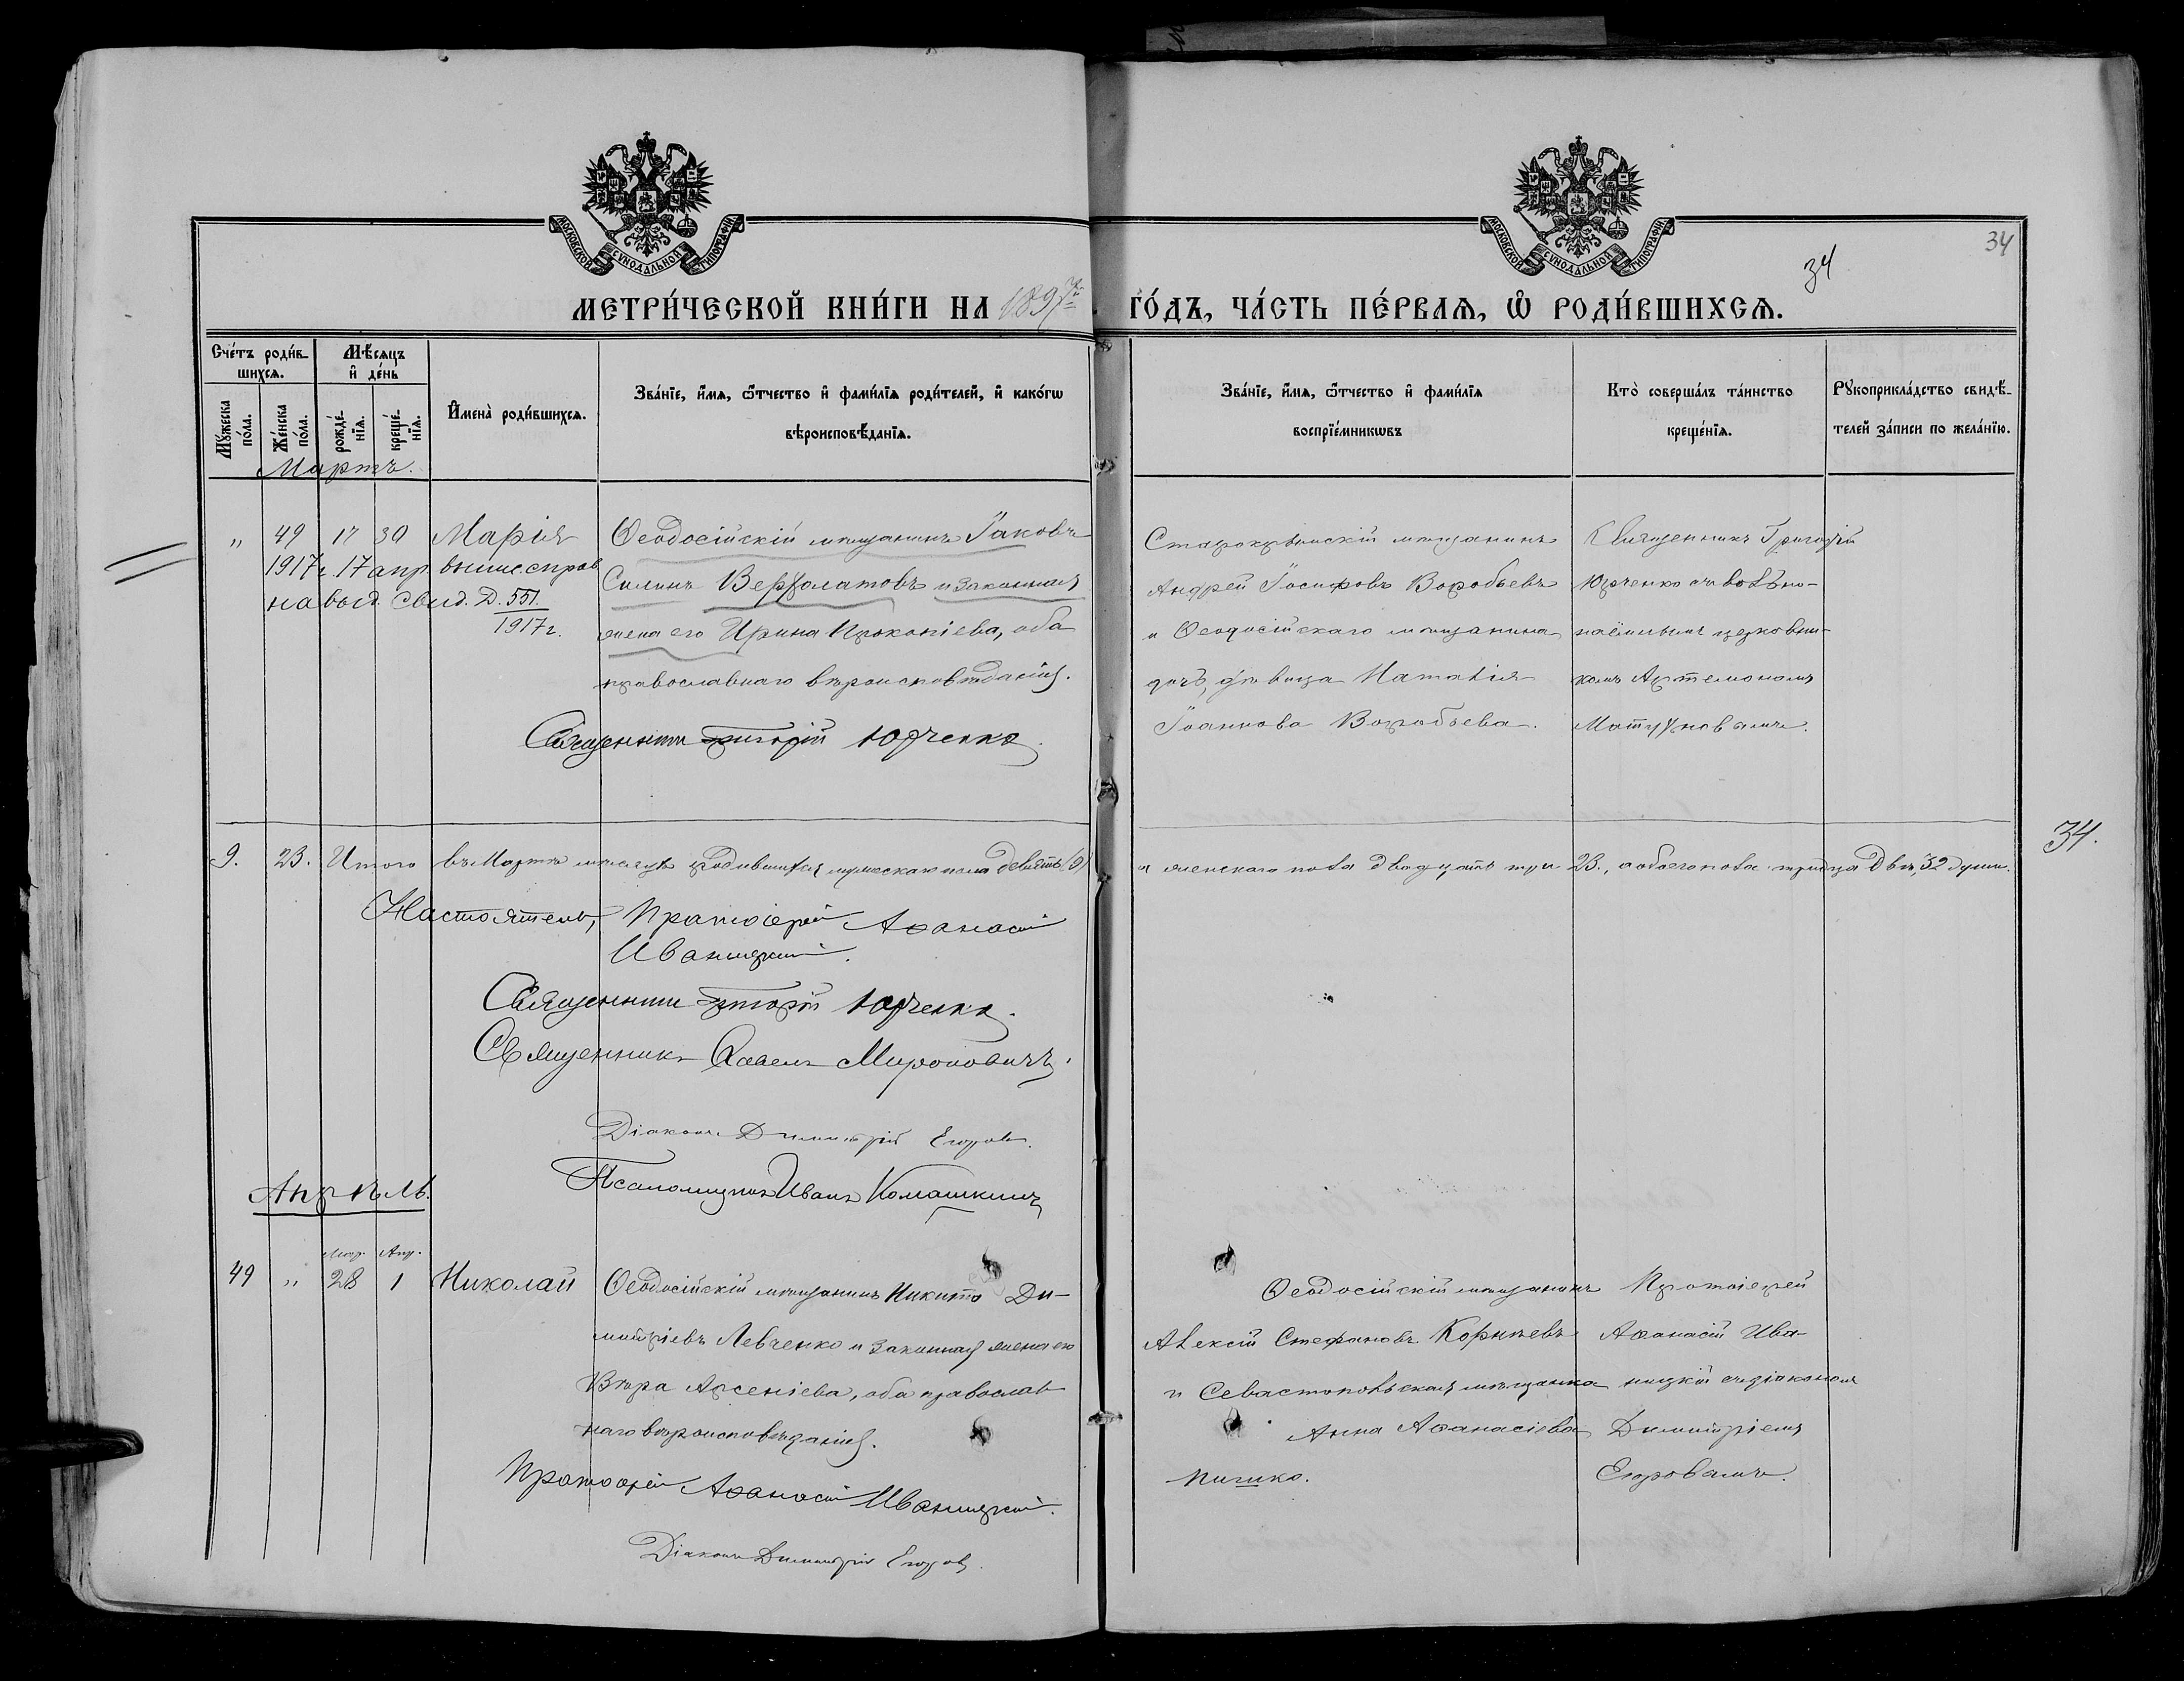 МОСКОВСКОЙ СѴНОДАЛЬНОЙ ТИПОГРАФІИ
МОСКОВСКОЙ СѴНОДАЛЬНОЙ ТИПОГРАФІИ
34
34
МЕТРИ́ЧЕСКОЙ КНИ́ГИ НА 1897й ГО́ДЪ, ЧА́СТЬ ПЕ́РВАЯ, Ѡ РОДИ́ВШИХСЯ.
Сче́тъ роди́в-
шихся.
Мѣсяцъ
и де́нь
Мꙋжеска
по́ла.
Же́нска
по́ла.
рожде́-
нїя.
креще́-
нїя.
Имена̀ роди́вшихся.
Зва́нїе, и́мя, ѻ́тчество и фами́лїя роди́телей, и како́гѡ
вѣроисповѣ́данїя.
Зва́нїе, и́мя, ѻ́тчество и фами́лїя
воспрїе́мникѡвъ
Кто̀ соверша́лъ та́инство
креще́нїя.
Рꙋкоприкла́дство свидѣ́-
телей за́писи по жела́нїю.
Мартъ.
" 49 17 30 Марія
1917г. 17 апр. выпис. справ
на выд. свид. Д. 551.
1917 г.
Ѳеодосійскій мѣщанинъ Іаковъ
Силинъ и законная
жена его Ирина Прокопіева, оба
православнаго вѣроисповѣданія.
Священникъ Григорій Юрченко.
Старокрымскій мѣщанинъ
Андрей Іосифовъ Воробьевъ
и Ѳеодосійскаго мѣщанина
дочь, дѣвица Наталія
Іоаннова Воробьева.
Священникъ Григорій
Юрченко съ вольно-
наёмнымъ церковни-
комъ Артемономъ
9. 23. Итого въ Мартѣ мѣсяцѣ родившихся мужескаго пола девять (9) и женскаго пола двадцать три 23., а обоего пола тридца двѣ, 32 души.
34.
Настоятель, Протоіерей Аѳанасій
Иваницкій.
Священникъ Григорій Юрченко.
Священникъ Павелъ Мироновичъ.
Діаконъ Димитрій Егоровъ.
Псаломщикъ Иванъ Комашкинъ
Апрѣль.
Мар. Апр.
49 " 28 1 Николай
Ѳеодосійскій мѣщанинъ Никита Ди-
митріевъ Левченко и законная жена его
Вѣра Арсеніева, оба православ-
наго вѣроисповѣданія.
Протоіерей Аѳанасій Иваницкій.
Діаконъ Димитрій Егоровъ.
Ѳеодосійскій мѣщанинъ
Алексій Стефановъ Корнѣевъ
и Севастопольская мѣщанка
Анна Аѳанасіева
Протоіерей
Аѳанасій Ива-
ницкій съ діакономъ
Димитріемъ
Егоровымъ.